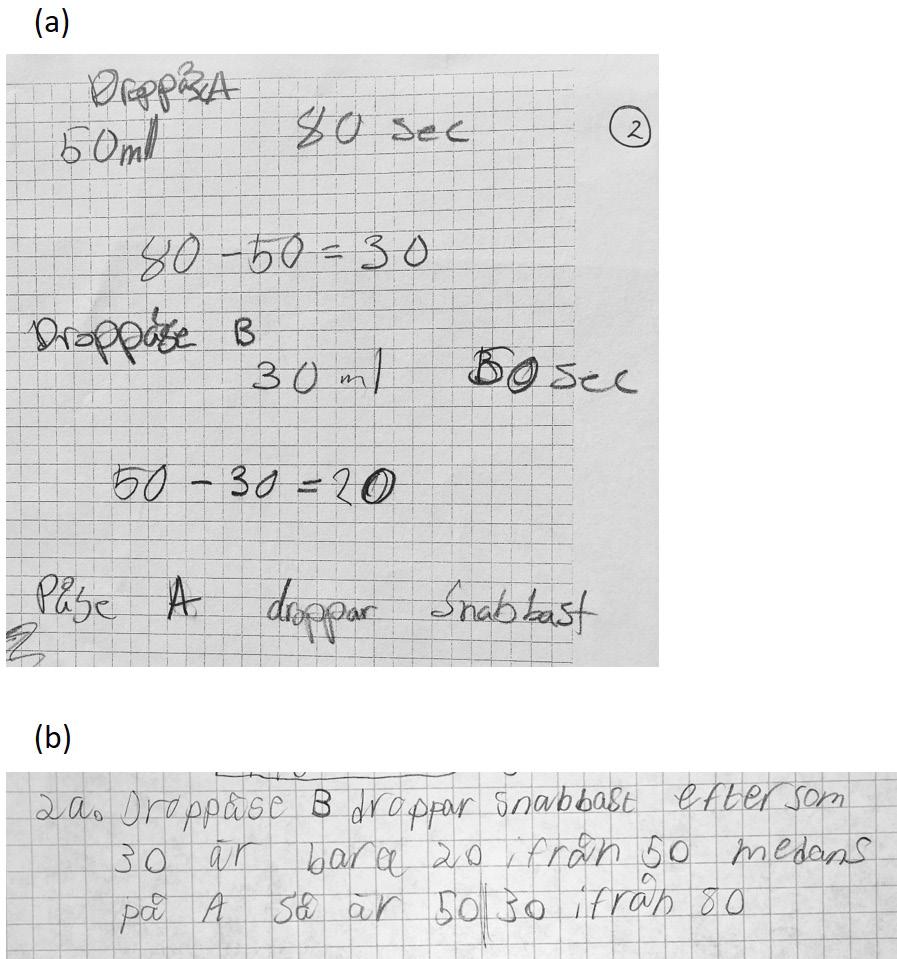 (a)
Droppåse A
50ml 80 sec 2
80 - 50 = 30
Droppåse B
30 ml 50 sec
50 - 30 = 20
Påse A droppar snabbast
(b)
2a. Droppåse B droppar snabbast eftersom
30 är bara 20 ifrån 50 medans
på A så är 50 30 ifrån 80